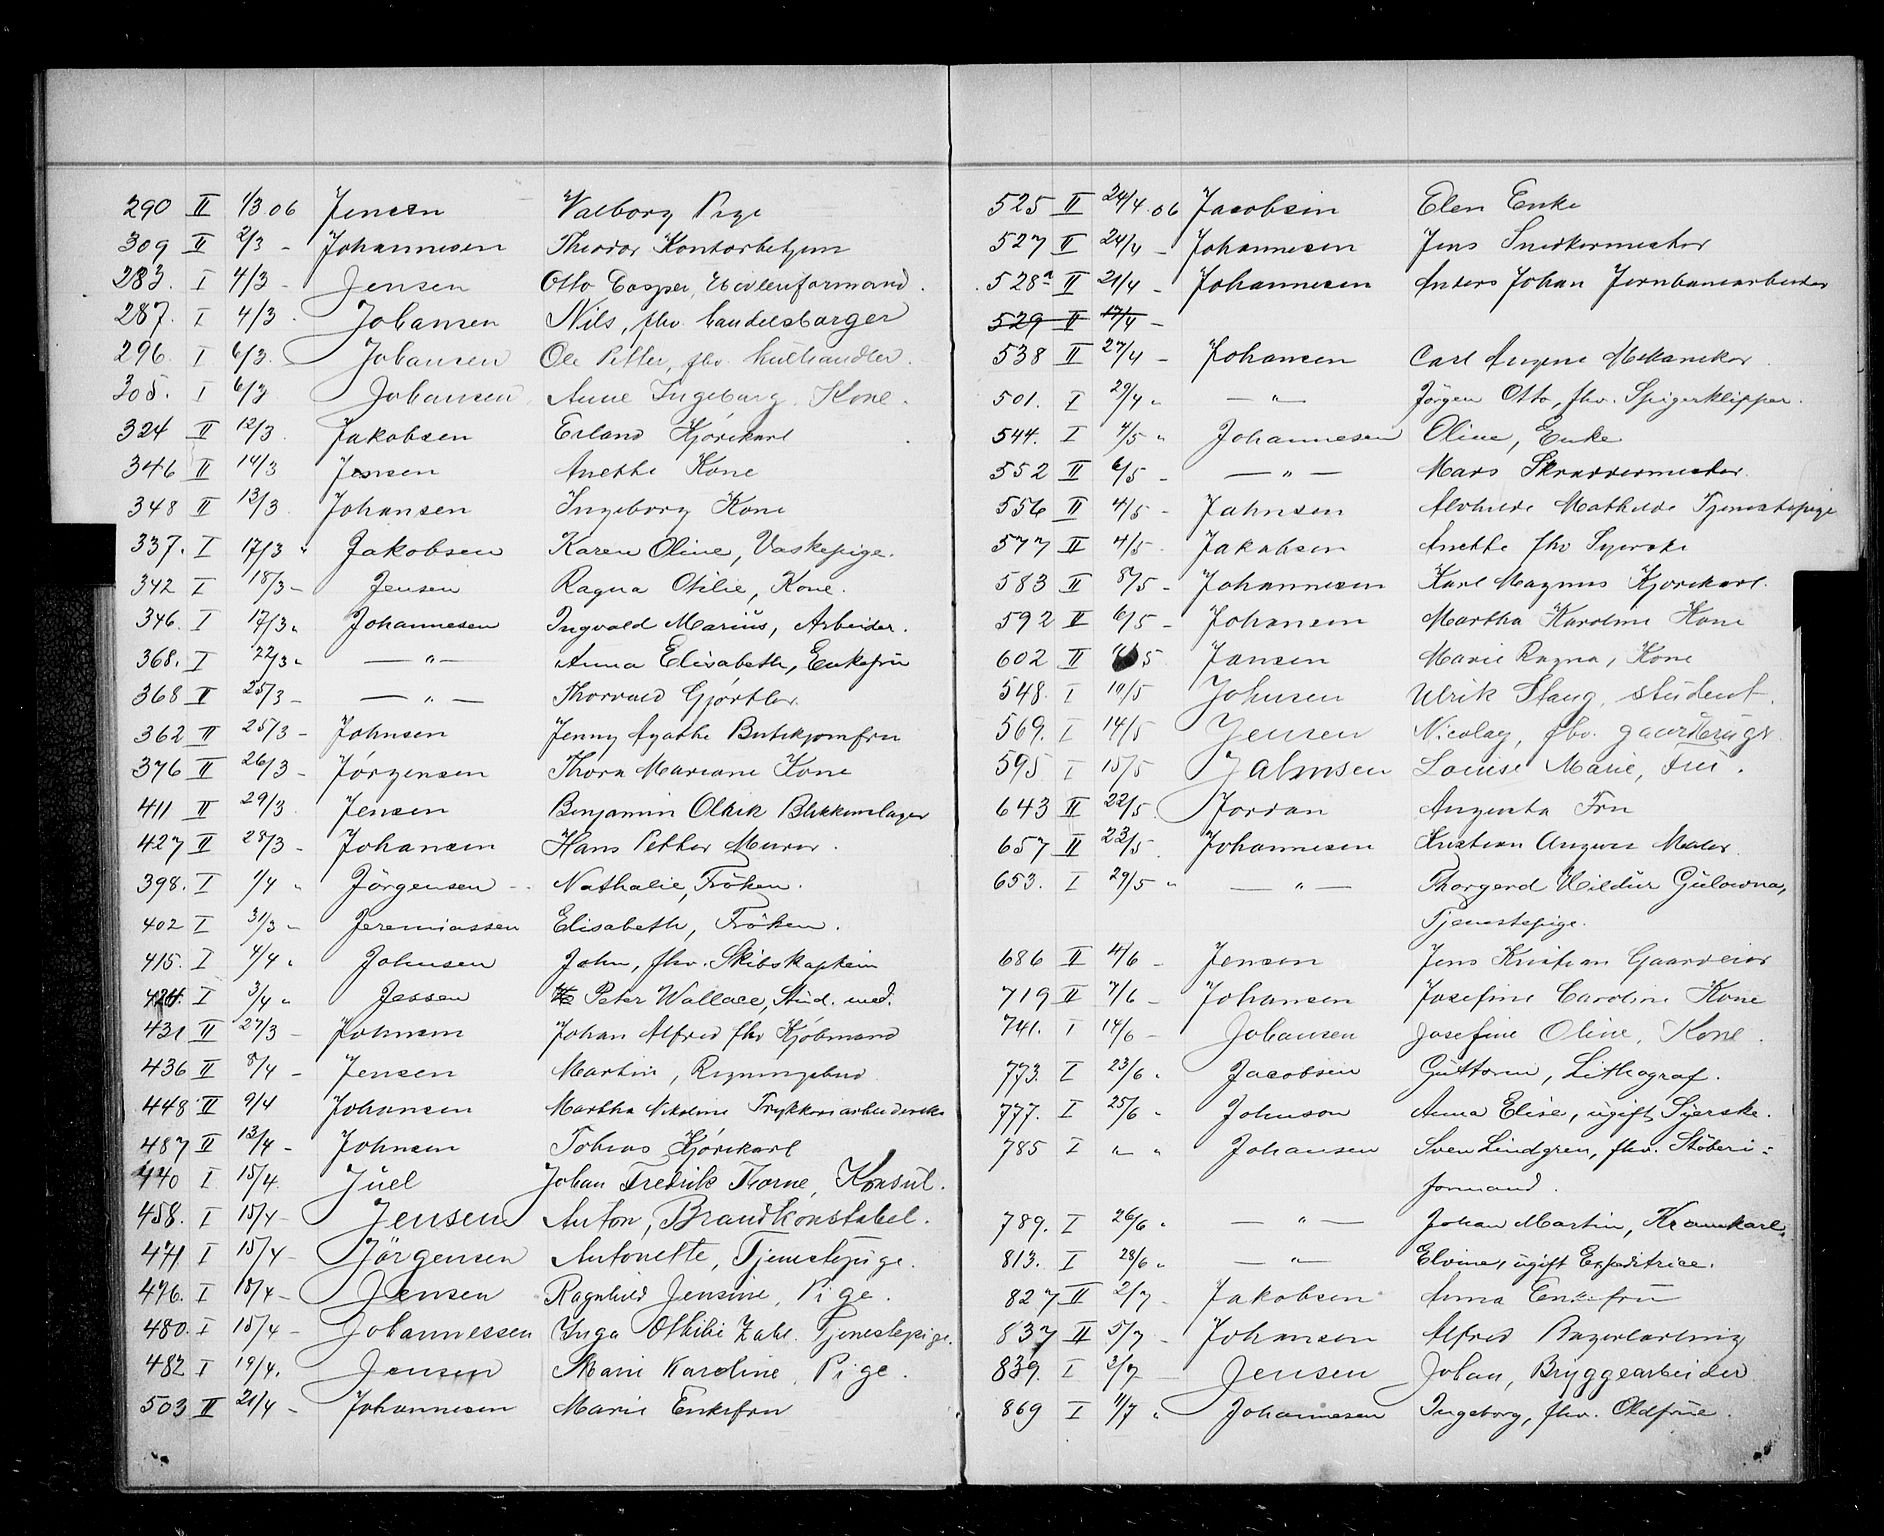 290 II 1/3 06 Jensen Valborg Pige
309 II 2/3 - Johannesen Theodor Kontorbetjen
283. I 4/3 - Jensen Otto Casper,
287. I 4/3 - Johansen Nils, fhv. handelsborger
296. I 6/3. - Johansen Ole Petter, fhv. kulhandler.
305. I 6/3 Johansen Anne Ingeborg. Kone.
324 II 12/3. Jakobsen Erland Kjørekarl
346 II 14/3 Jensen Anethe Kone
348 II 13/3. Johansen Ingeborg Kone
337. I 17/3 " Jakobsen Karen Oline, Vaskepige.
342 I 18/3 - Jensen Ragna Otilie, Kone.
346. I 17/3 " Johannesen Ingvald Marius, Arbeider.
368. I 22/3 " — " — Anna Elisabeth, Enkefru
368 II 25/3 - — " — Thorvald Gjørtler.
362 II 25/3 - Johnsen Jenny Agathe Butikjomfru
376 II 26/3 - Jørgensen Thora Mariane Kone
411 II 29/3. Jensen Benjamin Olrik Blikkenslager
427 II 28/3 - Johansen Hans Petter Murer.
398. I 1/4 " Jörgensen - Nathalie, Fröken.
402 I 31/3 " Jeremiassen Elisabeth, Fröken.
415. I 4/4 " Johnsen John, fhv. Skibskaptein
424. I 3/4 " Jessen Peter Wallace, Stud. med.
431 II 27/3 - Johnsen Johan Alfred fhv Kjøbmand
436 II 8/4 - Jensen Martin, Rigningsbud
448 II 9/4 Johansen Martha Nikoline Trykkeriarbeiderske
487 II 13/4 - Johnsen Tobias Kjørekarl
440 I 15/4. Juel Johan Fredrik Thorne, Konsul.
458. I 15/4 - Jensen Anton, Brandkonstabel.
471 I 15/4 - Jörgensen Antonette, Tjenestepige.
476. I 18/4 - Jensen Ragnhild Jensine, Pige.
480. I 15/4 - Johannessen Inga Othilie Zahl. Tjenestepige.
482 I 19/4. Jensen Marie Karoline, Pige.
503 II 21/4 - Johannesen Marie Enkefru
525 II 24/4 06 Jacobsen Elen Enke
527 II 24/4 - Johannesen Jens Snedkermester
528a II 21/4 - Johannesen Anders Johan Jernbanearbeider
529 II 17/4 -
538 II 27/4 - Johansen Carl Augene Mekaniker
501. I 29/4 " — " — Jörgen Otto, fhv. Spigerklipper.
544. I 4/5 " Johannesen Oline, Enke
552 II 6/5 - — " — Mads Skreddermester.
556 II 4/5 - Jahnsen Alvhilde Mathilde Tjenestepige
577 II 4/5 . Jakobsen Anethe fhv Syerske
583 II 8/5 - Johannesen Karl Magnus Kjørekarl.
592 II 6/5 - Johansen Martha Karoline Kone
602 II 5. Jansen Marie Ragna, Kone
548. I 10/5 Johnsen Ulrik Stang, student.
569. I 14/5 Jensen Nicolay, fhv. gaardbruger.
595 I 15/5 Jahnsen Louise Marie, Fru.
643 II 22/5. Jordan Augusta Fru
657 II 23/5. Johannesen Kristian August Maler.
653. I 29/5 " — " — Thorgerd Hildur Gulowna,
Tjenestepige.
686 II 4/6 - Jensen Jens Kristian Gaardeier
719 II 7/6 - Johansen Josefine Caroline Kone
741. I 14/6 - Johansen Josefine Oline, Kone.
773. I 23/6 " Jacobsen Guttorm, Lithograf.
777. I 25/6 " Johnson Anna Elise, ugift Syerske.
785 I " " Johansen Sven Lindgren, fhv. Støberi-
formand.
789. I 26/6 " — " — Johan Martin, Krankarl.
813. I 28/6 " — " — Elvine, ugift Expeditrice.
827 II 2/7 - Jakobsen Anna Enkefru
837 II 5/7 - Johansen Alfred Bagerlærling
839. I 2/7 Jensen Johan, Bryggearbeider
869 I 11/7 " Johannesen Ingeborg, fhv. Oldfrue.